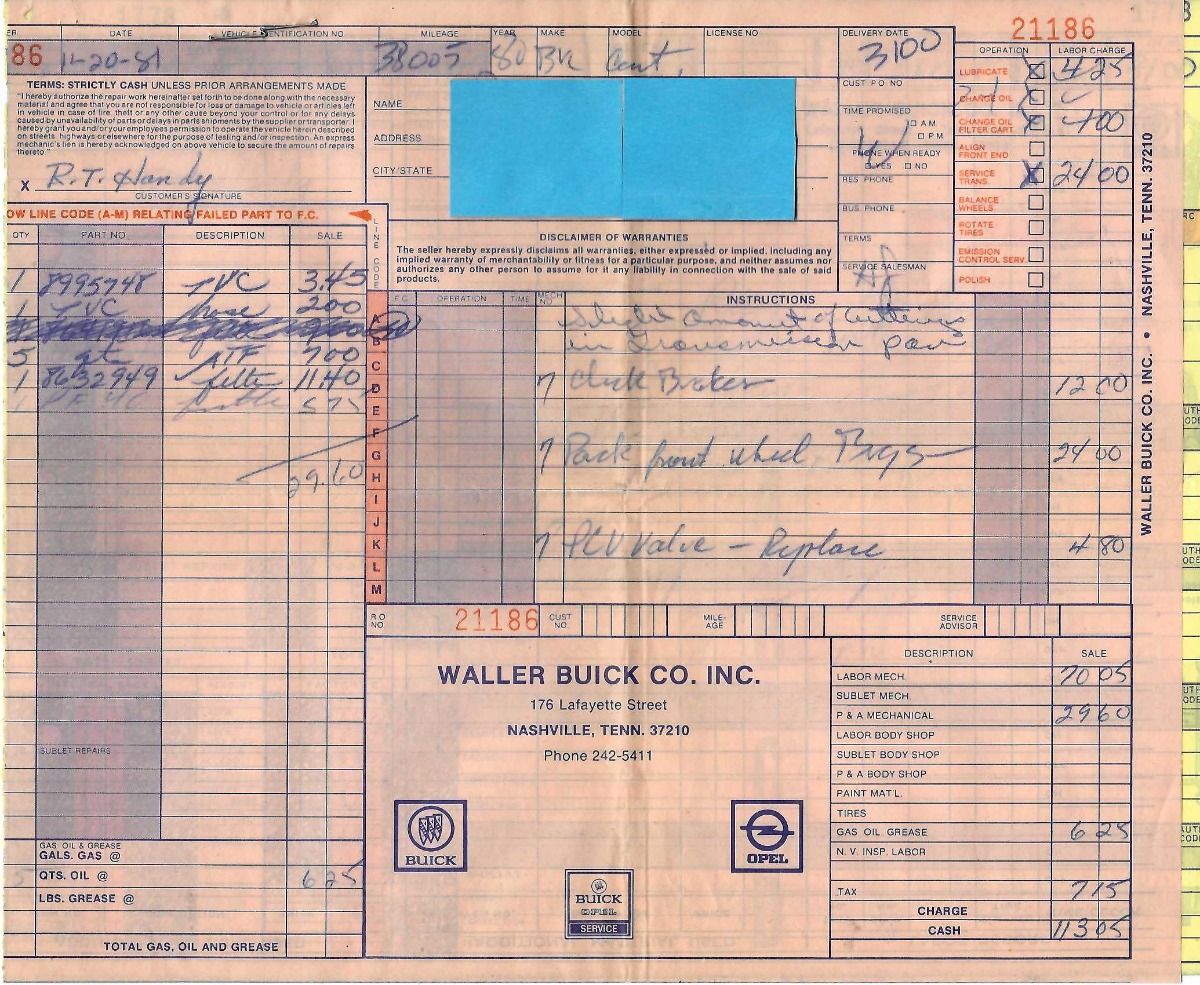 21186
DATE VEHICLE IDENTIFICATION NO MILEAGE YEAR MAKE MODEL LICENSE NO DELIVERY DATE
86 11-20-81 38005 80 BK Cent. 3100
TERMS: STRICTLY CASH UNLESS PRIOR ARRANGEMENTS MADE
"I hereby authorize the repair work hereinafter set forth to be done along with the necessary
material and agree that you are not responsible for loss or damage to vehicle or articles left
in vehicle in case of fire, theft or any other cause beyond your control or for any delays
caused by unavailability of parts or delays in parts shipments by the supplier or transporter. I
hereby grant you and/or your employees permission to operate the vehicle herein described
on streets, highways or elsewhere for the purpose of testing and/or inspection. An express
mechanic's lien is hereby acknowledged on above vehicle to secure the amount of repairs
thereto."
X R.T. Handy
CUSTOMER'S SIGNATURE
NAME
ADDRESS
CITY/STATE
CUST P O NO
TIME PROMISED
AM
PM
PHONE WHEN READY
YES NO
RES PHONE
BUS. PHONE
TERMS
SERVICE SALESMAN
OPERATION LABOR CHARGE
LUBRICATE X 4 25
CHANGE OIL X
CHANGE OIL FILTER CART. X 4 00
ALIGN FRONT END
SERVICE TRANS. X 24 00
BALANCE WHEELS
ROTATE TIRES
EMISSION CONTROL SERV.
POLISH
DISCLAIMER OF WARRANTIES
The seller hereby expressly disclaims all warranties, either expressed or implied, including any
implied warranty of merchantability or fitness for a particular purpose, and neither assumes nor
authorizes any other person to assume for it any liability in connection with the sale of said
products.
OW LINE CODE (A-M) RELATING FAILED PART TO F.C.
LINE CODE
QTY PART NO. DESCRIPTION SALE
1 8995748 PVC 3.45
1 PVC hose 2 00
5 qt ATF 7 00
1 8632949 filter 11 40
5 75
29.60
A
B
C
D
E
F
G
H
I
J
K
L
M
F.C. OPERATION TIME MECH NO INSTRUCTIONS
Slight amount of cuttings
in Transmission pan
7 Check Brakes 12 00
7 Pack front wheel Brgs 24 00
7 PCV Valve - Replace 4 80
R.O NO. 21186 CUST NO. MILE-AGE SERVICE ADVISOR
WALLER BUICK CO. INC.
176 Lafayette Street
NASHVILLE, TENN. 37210
Phone 242-5411
BUICK
OPEL
BUICK
OPEL
SERVICE
SUBLET REPAIRS
GAS OIL & GREASE
GALS. GAS @
5 QTS. OIL @ 6 25
LBS. GREASE @
TOTAL GAS, OIL AND GREASE
DESCRIPTION SALE
LABOR MECH. 70 05
SUBLET MECH.
P & A MECHANICAL 29 60
LABOR BODY SHOP
SUBLET BODY SHOP
P & A BODY SHOP
PAINT MAT'L.
TIRES
GAS OIL GREASE 6 25
N. V. INSP. LABOR
TAX 7 15
CHARGE
CASH 113 05
WALLER BUICK CO. INC. • NASHVILLE, TENN. 37210